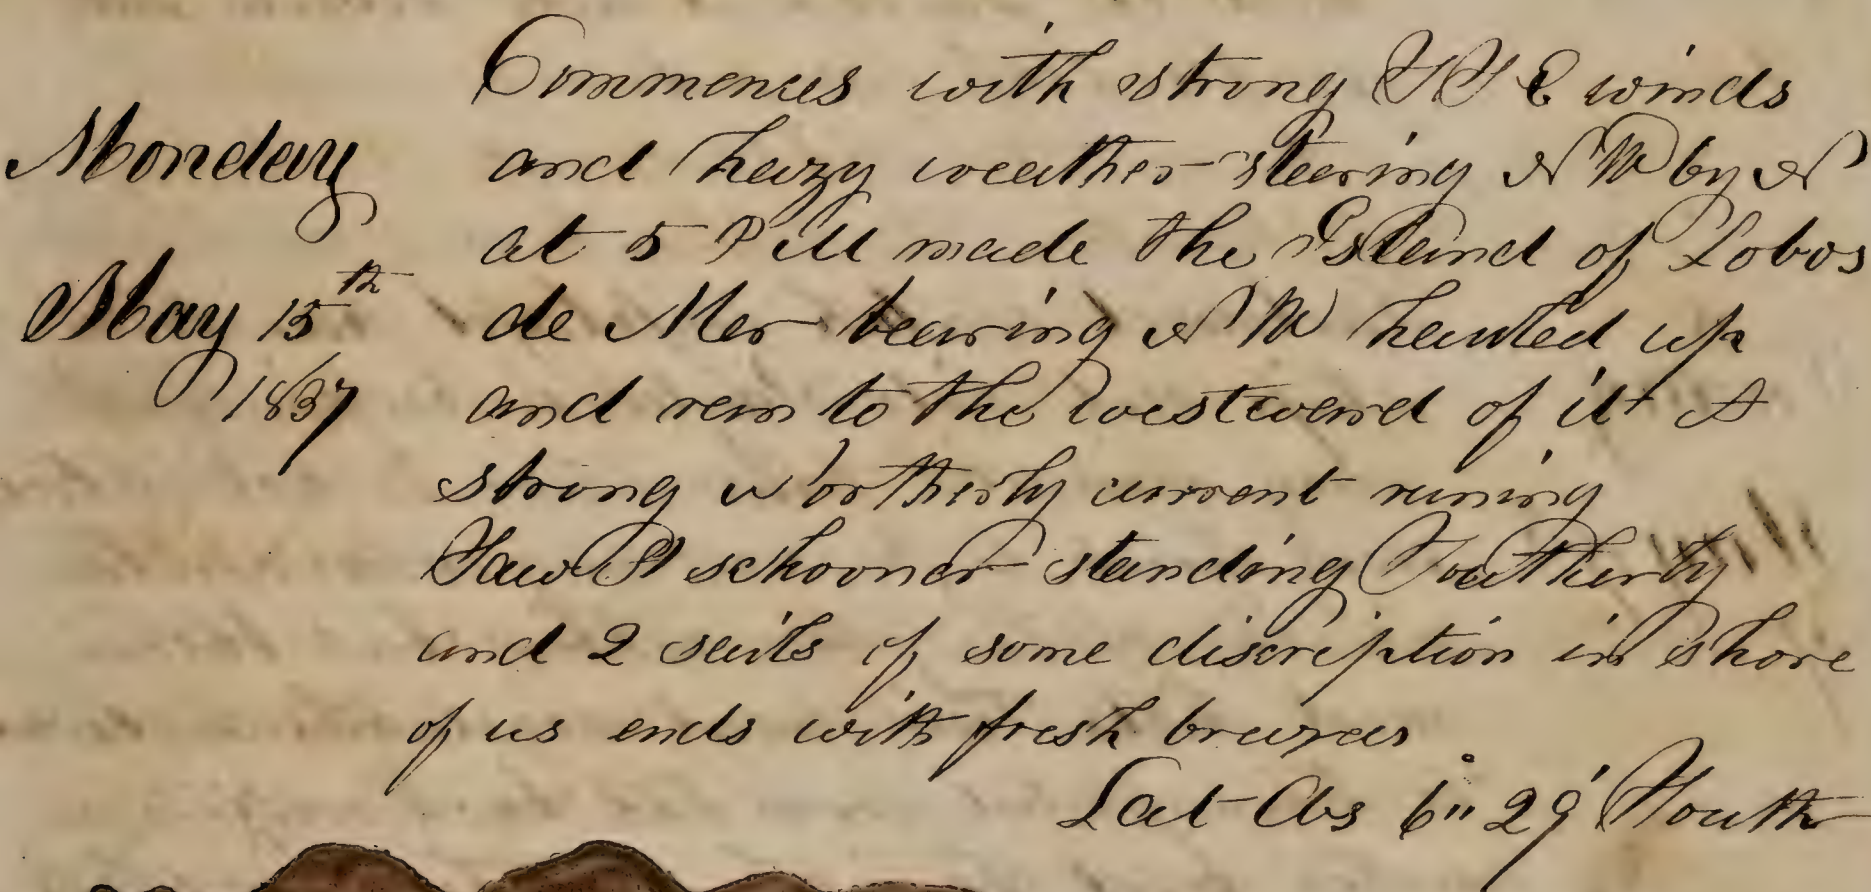 Monday
May 15th
1837
Commences with strong S S E winds
and hazy weather steering N W by N
at 5 P M made the Island of Lobos
de Mer bearing N W hauled up
and ran to the westward of it A
strong Northerly current runing
Saw A schooner standing Southerly
and 2 sails of some discription in shore
of us ends with fresh breezes
Lat Obs 6° 29' South